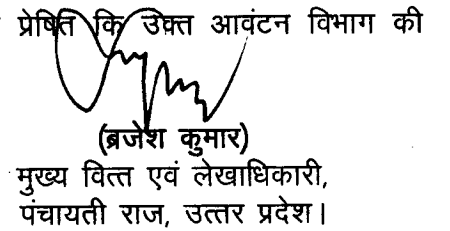 प्रेषित कि उक्त आवंटन विभाग की
(ब्रजेश कुमार)
मुख्य वित्त एवं लेखाधिकारी,
पंचायती राज, उत्तर प्रदेश।